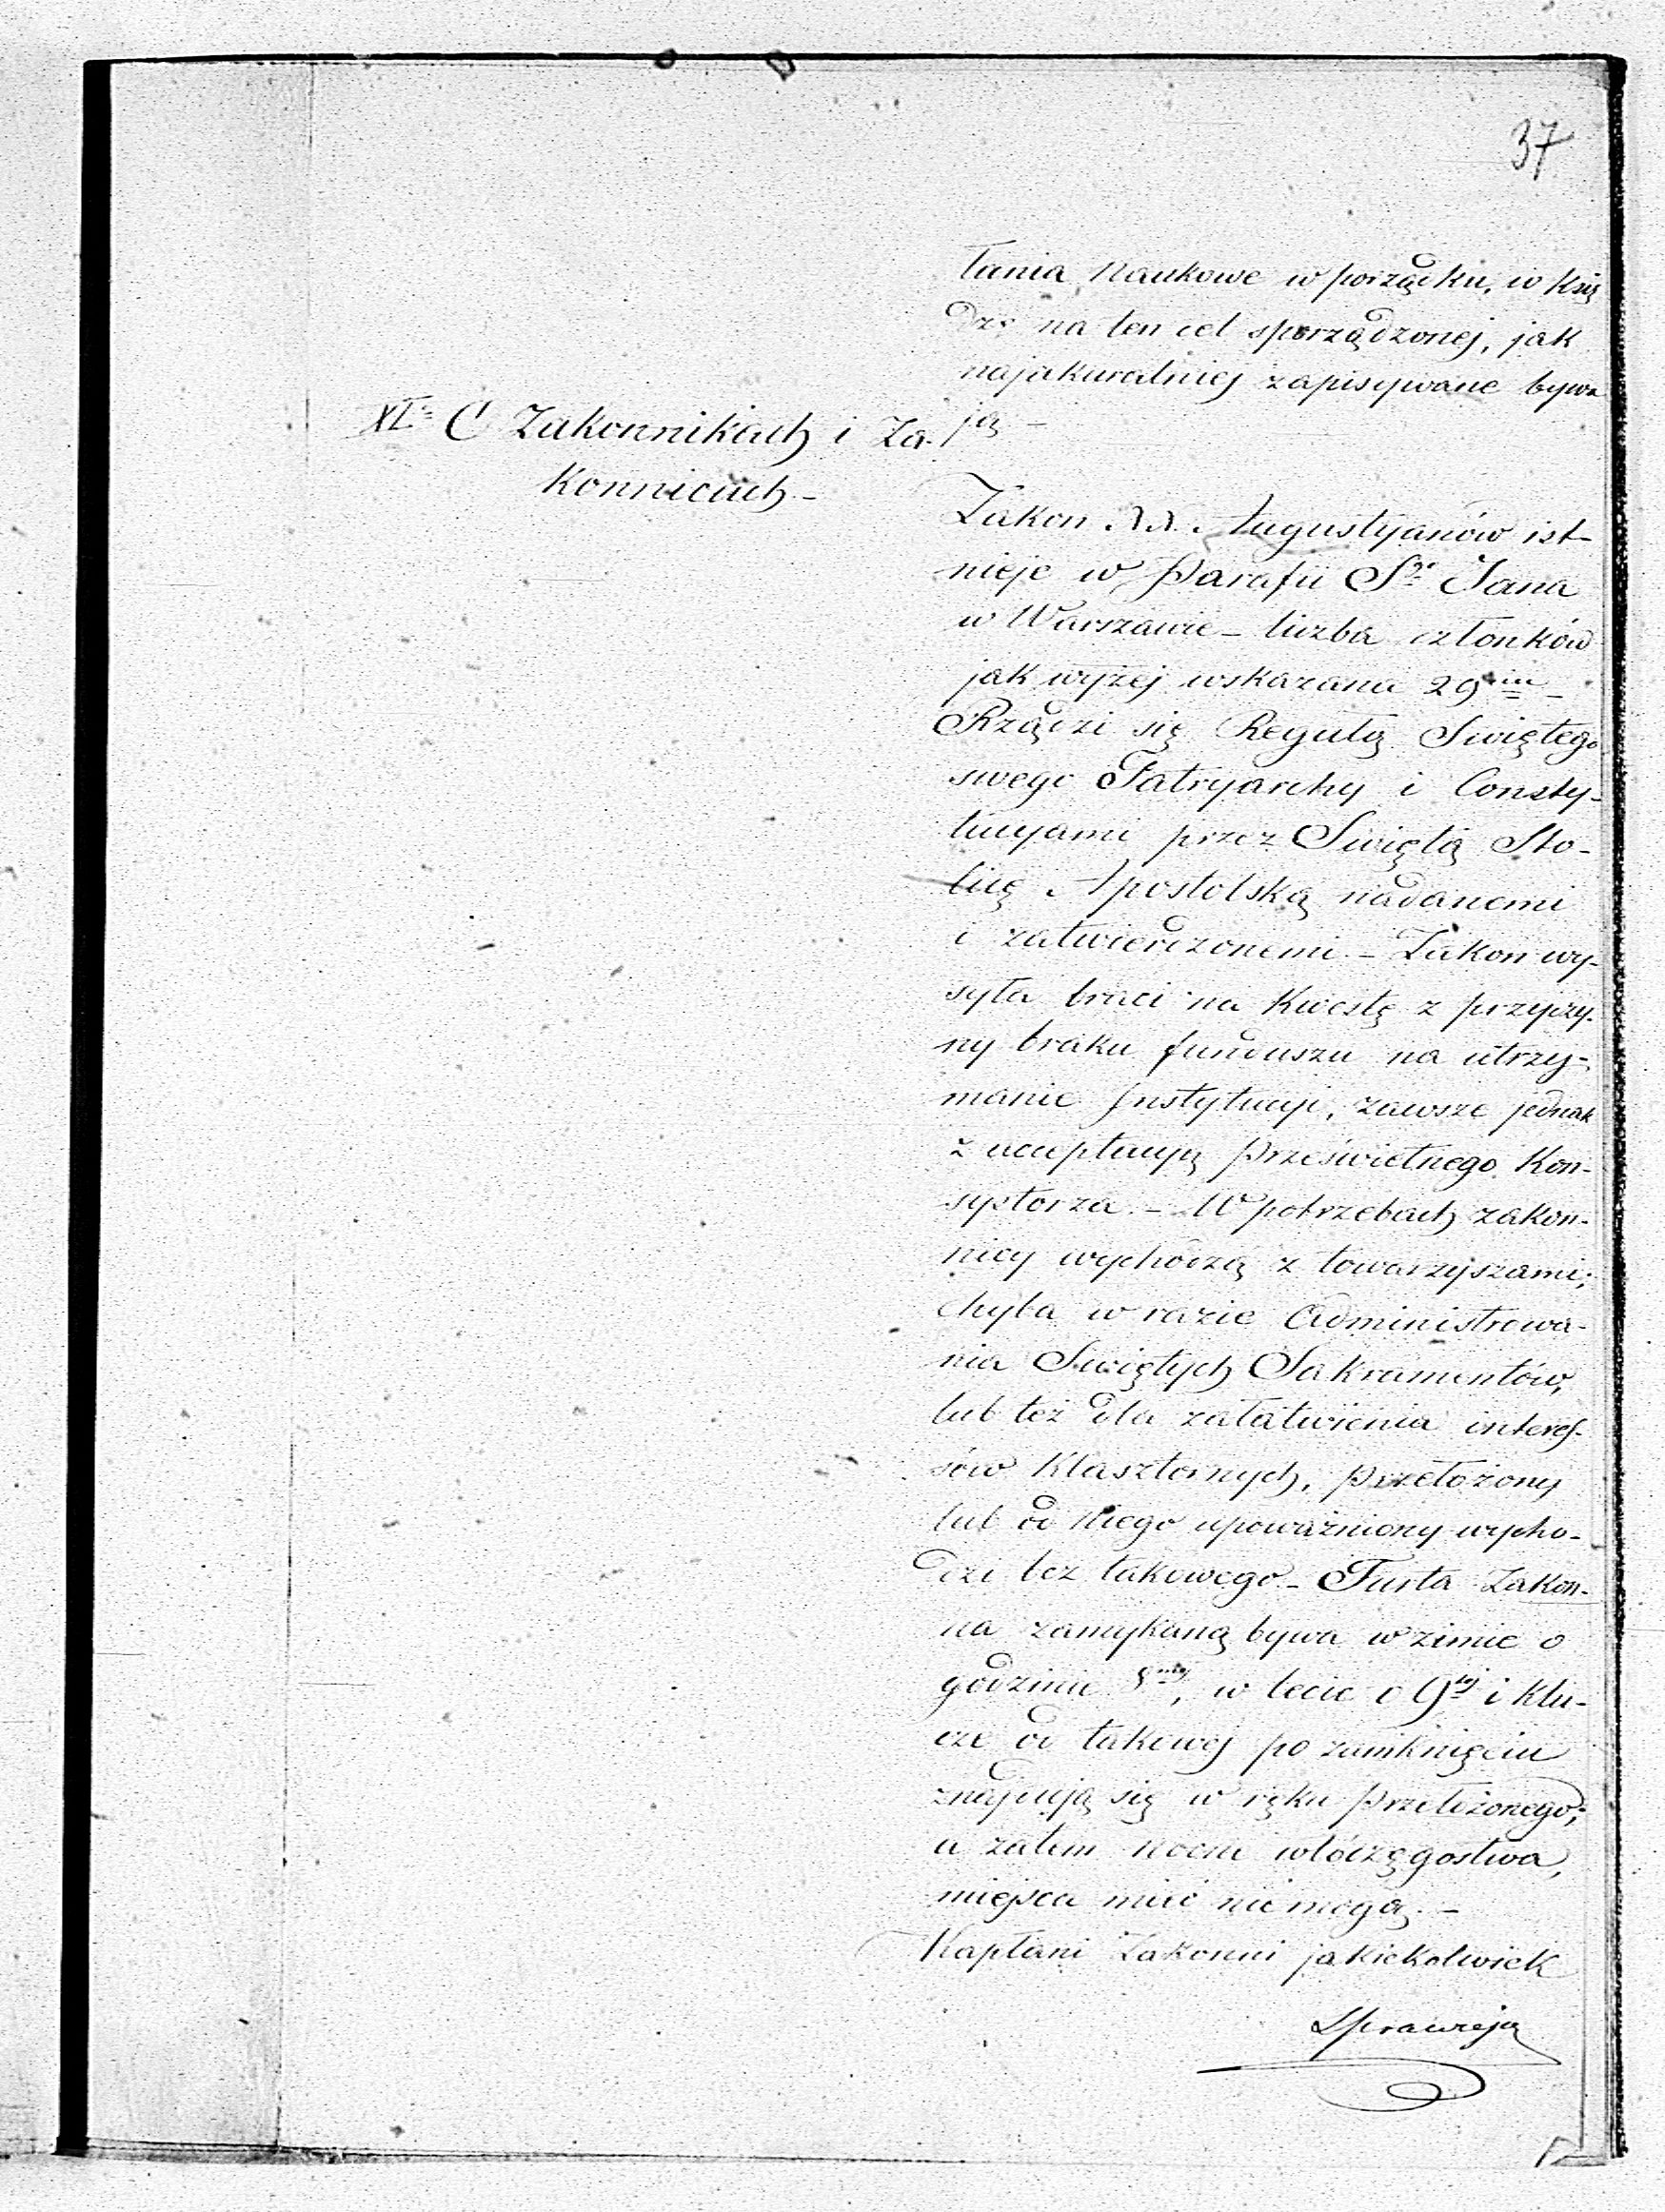 37
tania naukowe w porządku, w Księ
dze na ten cel sporządzonej, jak
najakuratniej zapisywane bywa
ją –
XI. O Zakonnikach i Za-
konnicach –
Zakon XX. Augustyanów ist-
nieje w Parafii Sgo Jana
w Warszawie – liczba członków
jak wyżej wskazana 29ciu –
Rządzi się Regułą Świętego
swego Patryarchy i Consty-
tucyami przez Świętą Sto-
licę Apostolską nadanemi
i zatwierdzonemi. – Zakon wy-
syła braci na Kwestę z przyczy-
ny braku funduszu na utrzy-
manie Instytucyi, zawsze jednak
z acceptacyą Prześwietnego Kon-
systorza. – W potrzebach zakon-
nicy wychodzą z towarzyszami;
chyba w razie Administrowa-
nia Świętych Sakramentów,
lub też dla załatwienia interes-
sów Klasztornych, Przełożony
lub od niego upoważniony wycho-
dzi bez takowego. – Furta Zakon-
na zamykaną bywa w zimie o
godzinie 8mej, w lecie o 9tej i klu-
cze od takowej po zamknięciu
znajdują się w ręku Przełożonego;
a zatem nocne włóczęgostwa,
miejsca mieć nie mogą. –
Kapłani Zakonni jakiekolwiek
Sprawują